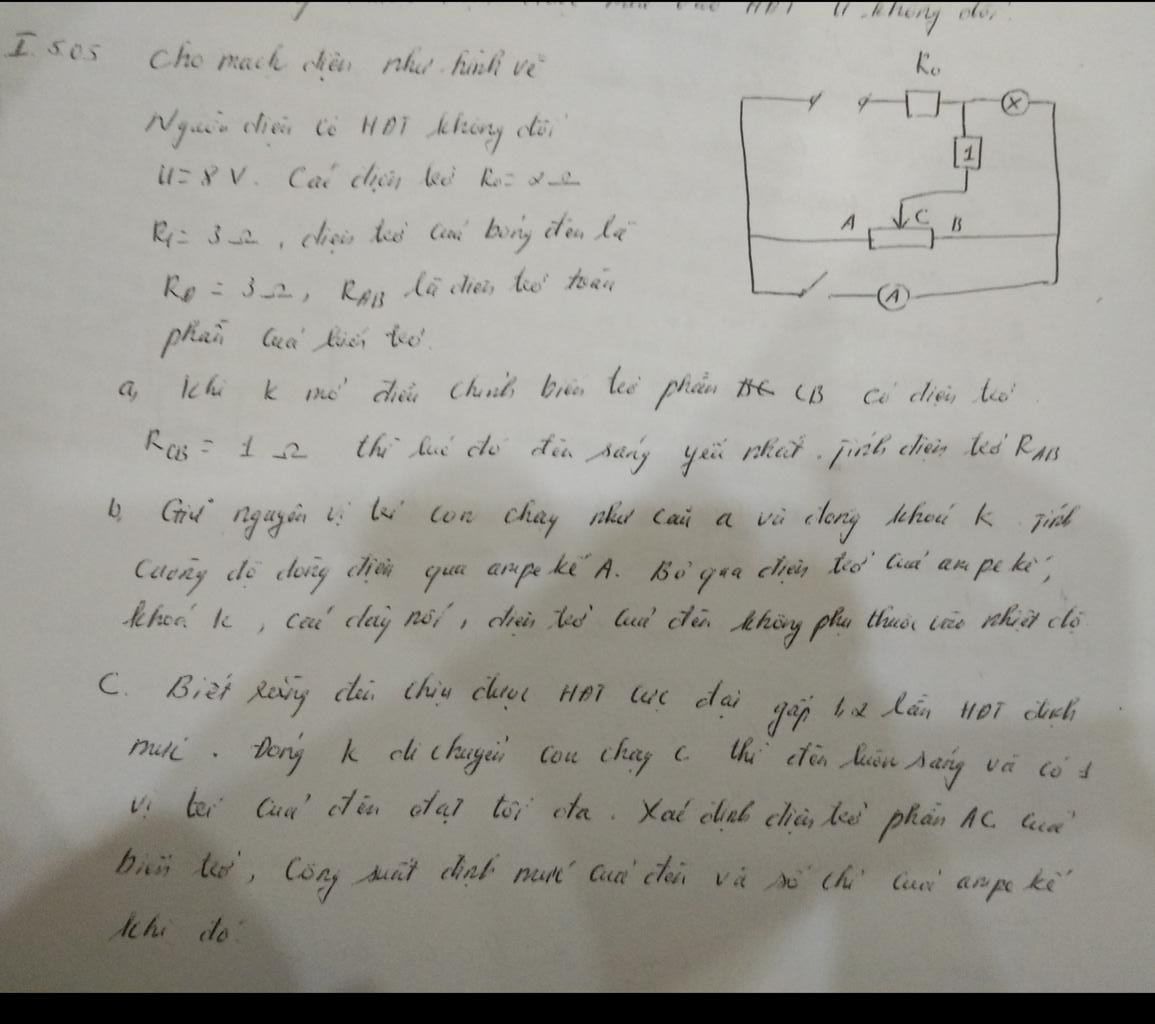 U không đổi.
I 505 Cho mạch điện như hình vẽ
R₀
Nguồn điện có HĐT không đổi
U = 8 V. Các điện trở R₀ = 2 Ω
1
R₁ = 3 Ω, điện trở của bóng đèn là
A C B
R_Đ = 3 Ω, R_AB là điện trở toàn
A
phần của biến trở.
a, Khi k mở điều chỉnh biến trở phần CB có điện trở
R_CB = 1 Ω thì lúc đó đèn sáng yếu nhất. Tính điện trở R_AB
b, Giữ nguyên vị trí con chạy như câu a và đóng khoá k. Tính
cường độ dòng điện qua ampe kế A. Bỏ qua điện trở của ampe kế,
khoá k, các dây nối, điện trở của đèn không phụ thuộc vào nhiệt độ.
C. Biết rằng đèn chịu được HĐT cực đại gấp 1,2 lần HĐT định
mức. Đóng k di chuyển con chạy C thì đèn luôn sáng và có 1
vị trí của đèn đạt tối đa. Xác định điện trở phần AC của
biến trở, công suất định mức của đèn và số chỉ của ampe kế
khi đó.